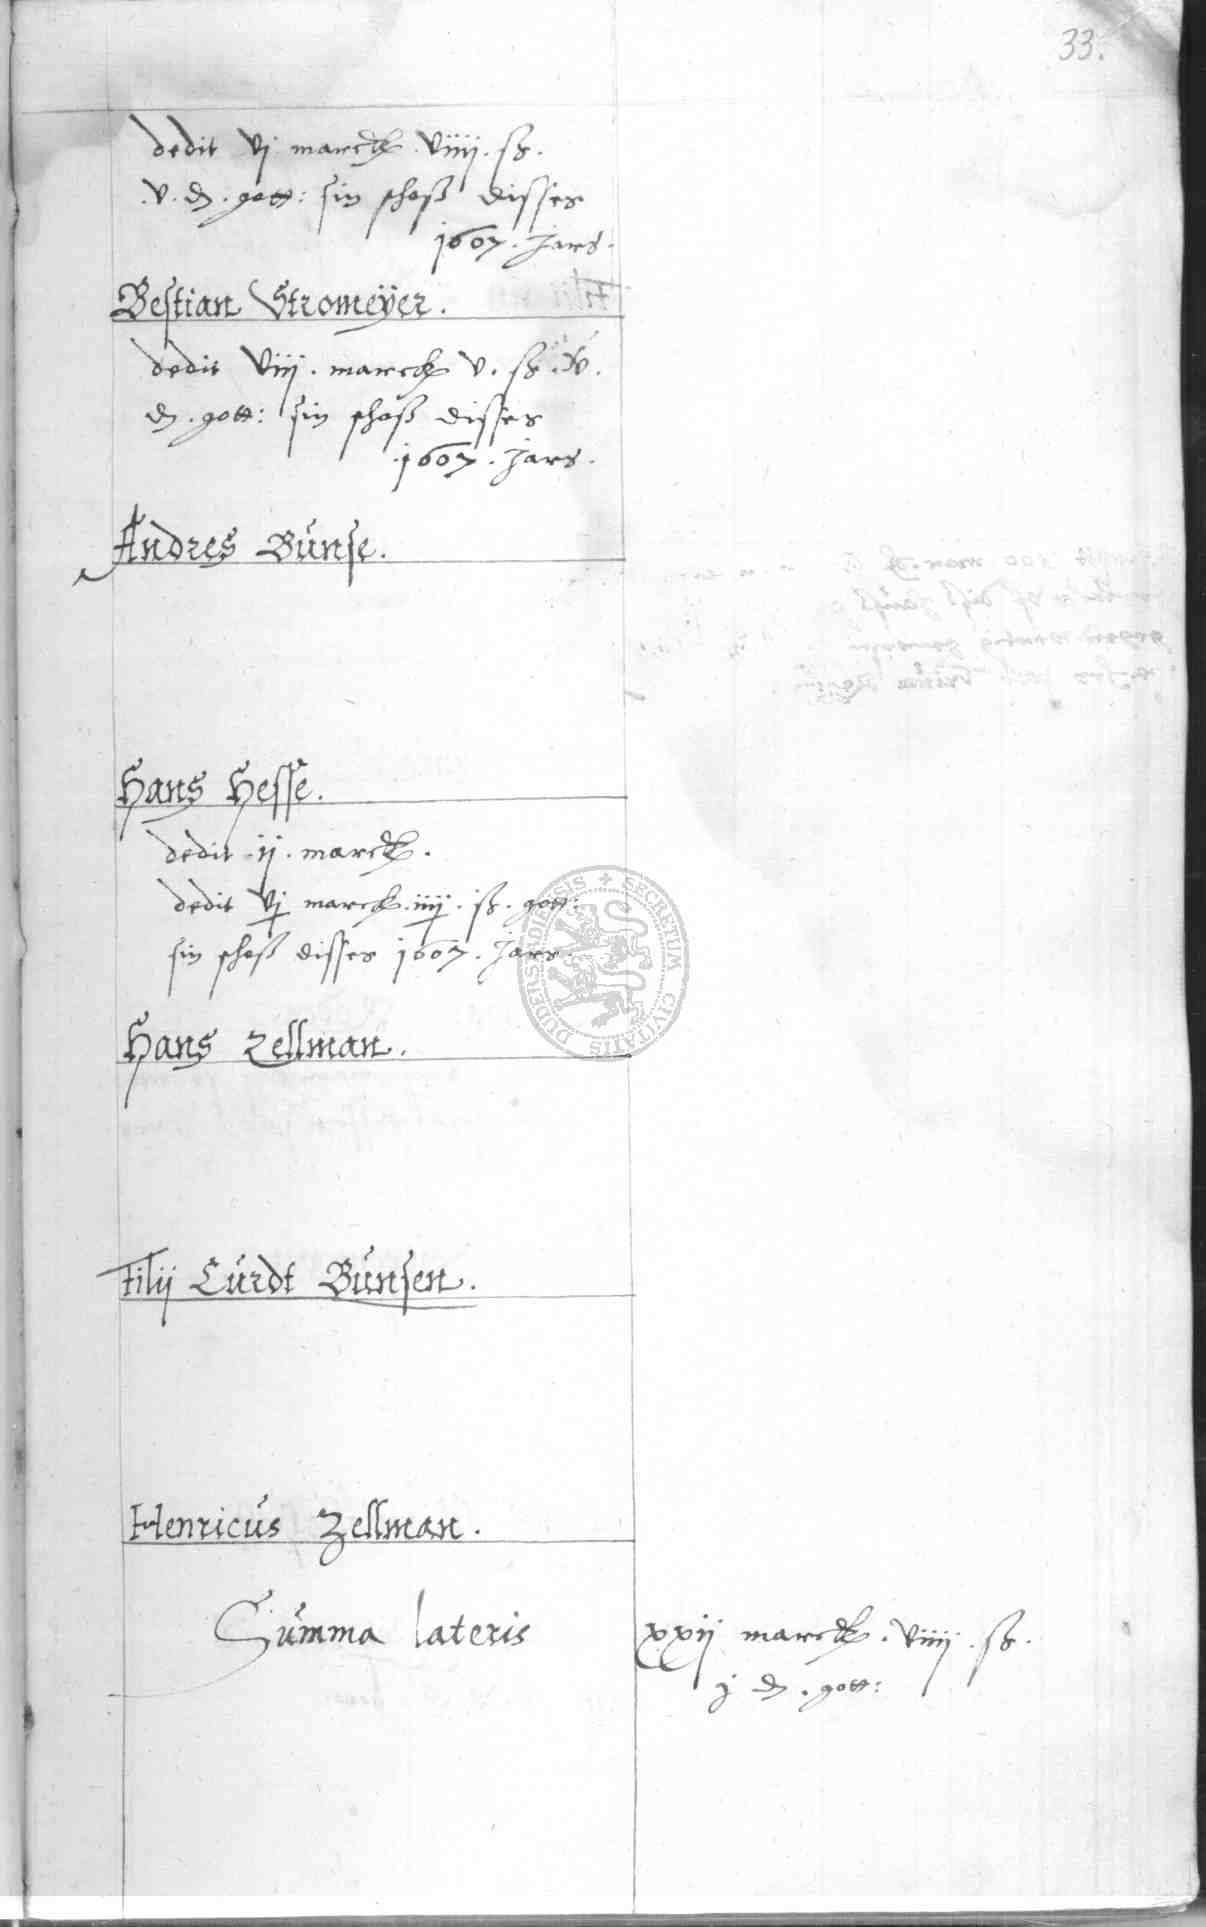 33.
dedit vj marck. viiij. ß.
.v. d. gott: sin schoß disses
1607. Jars.
Bestian Stromeÿer.
dedit viij. marck v. ß.
d. gott: sin schoß disses
.1607. Jars.
Andres Bunse.
Hans Hesse.
dedit .ij. marck.
dedit vj marck. iiij. ß. gott:
sin schoß disses 1607. Jars.
Hans Zellman.
filij Curdt Bunsen.
Henricus Zellman.
Summa lateris xxij marck. viiij. ß.
j d. gott:
SECRETUM CIVITATIS DUDERSTADENSIS